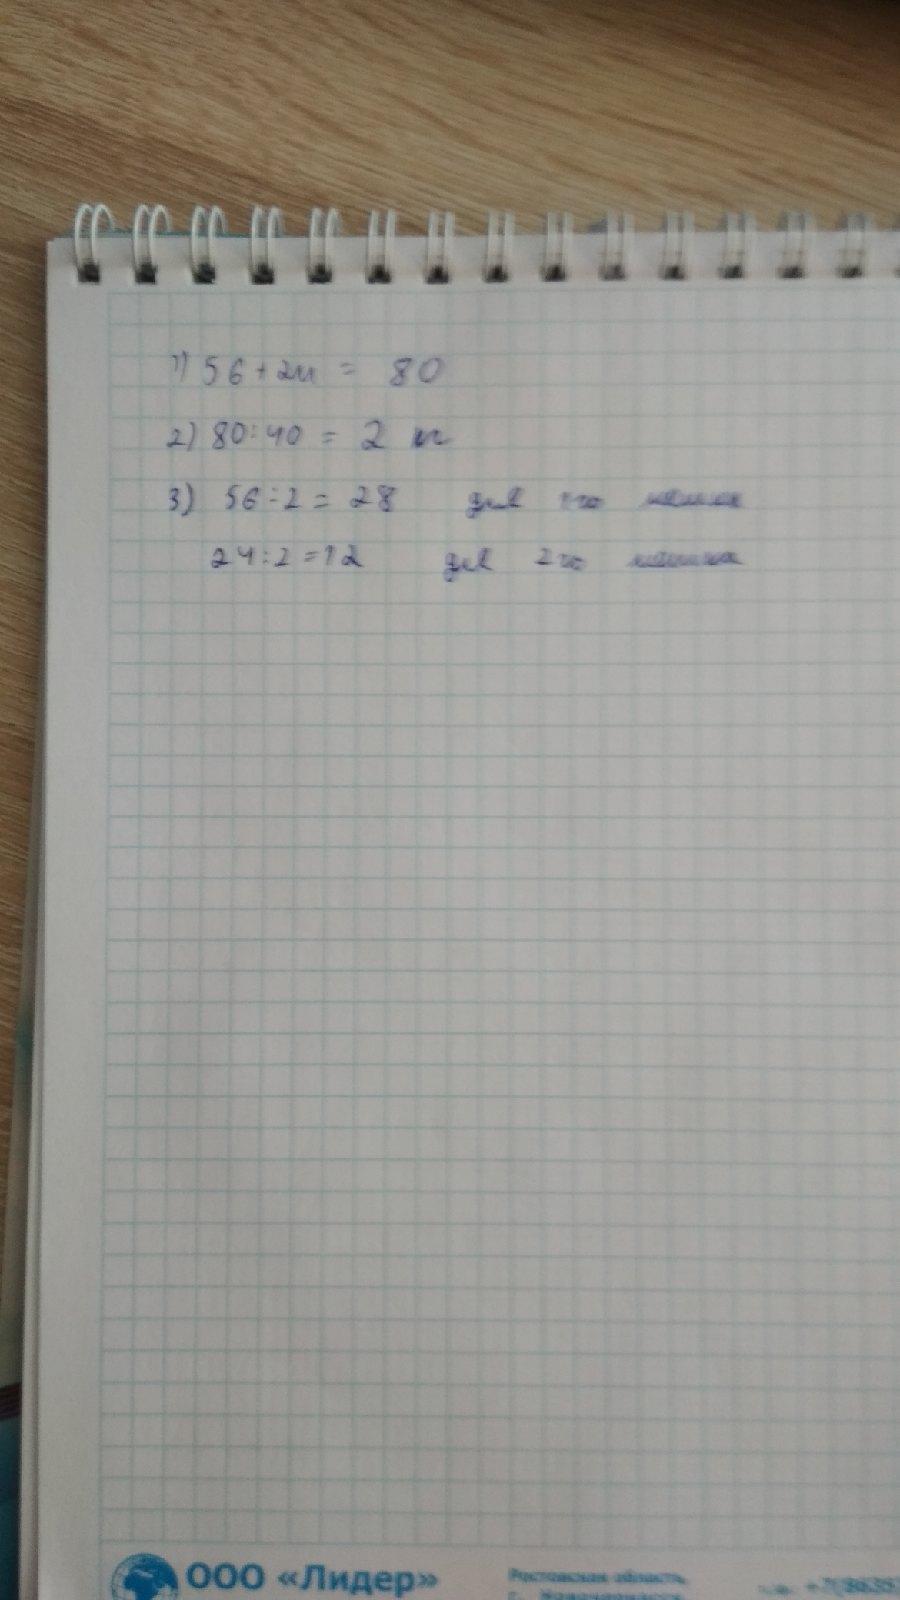 1) 56+24 = 80
2) 80:40 = 2 м
3) 56:2 = 28 для 1го
24:2=12 для 2го
ООО «Лидер»
Ростовская область,
г. Новочеркасск